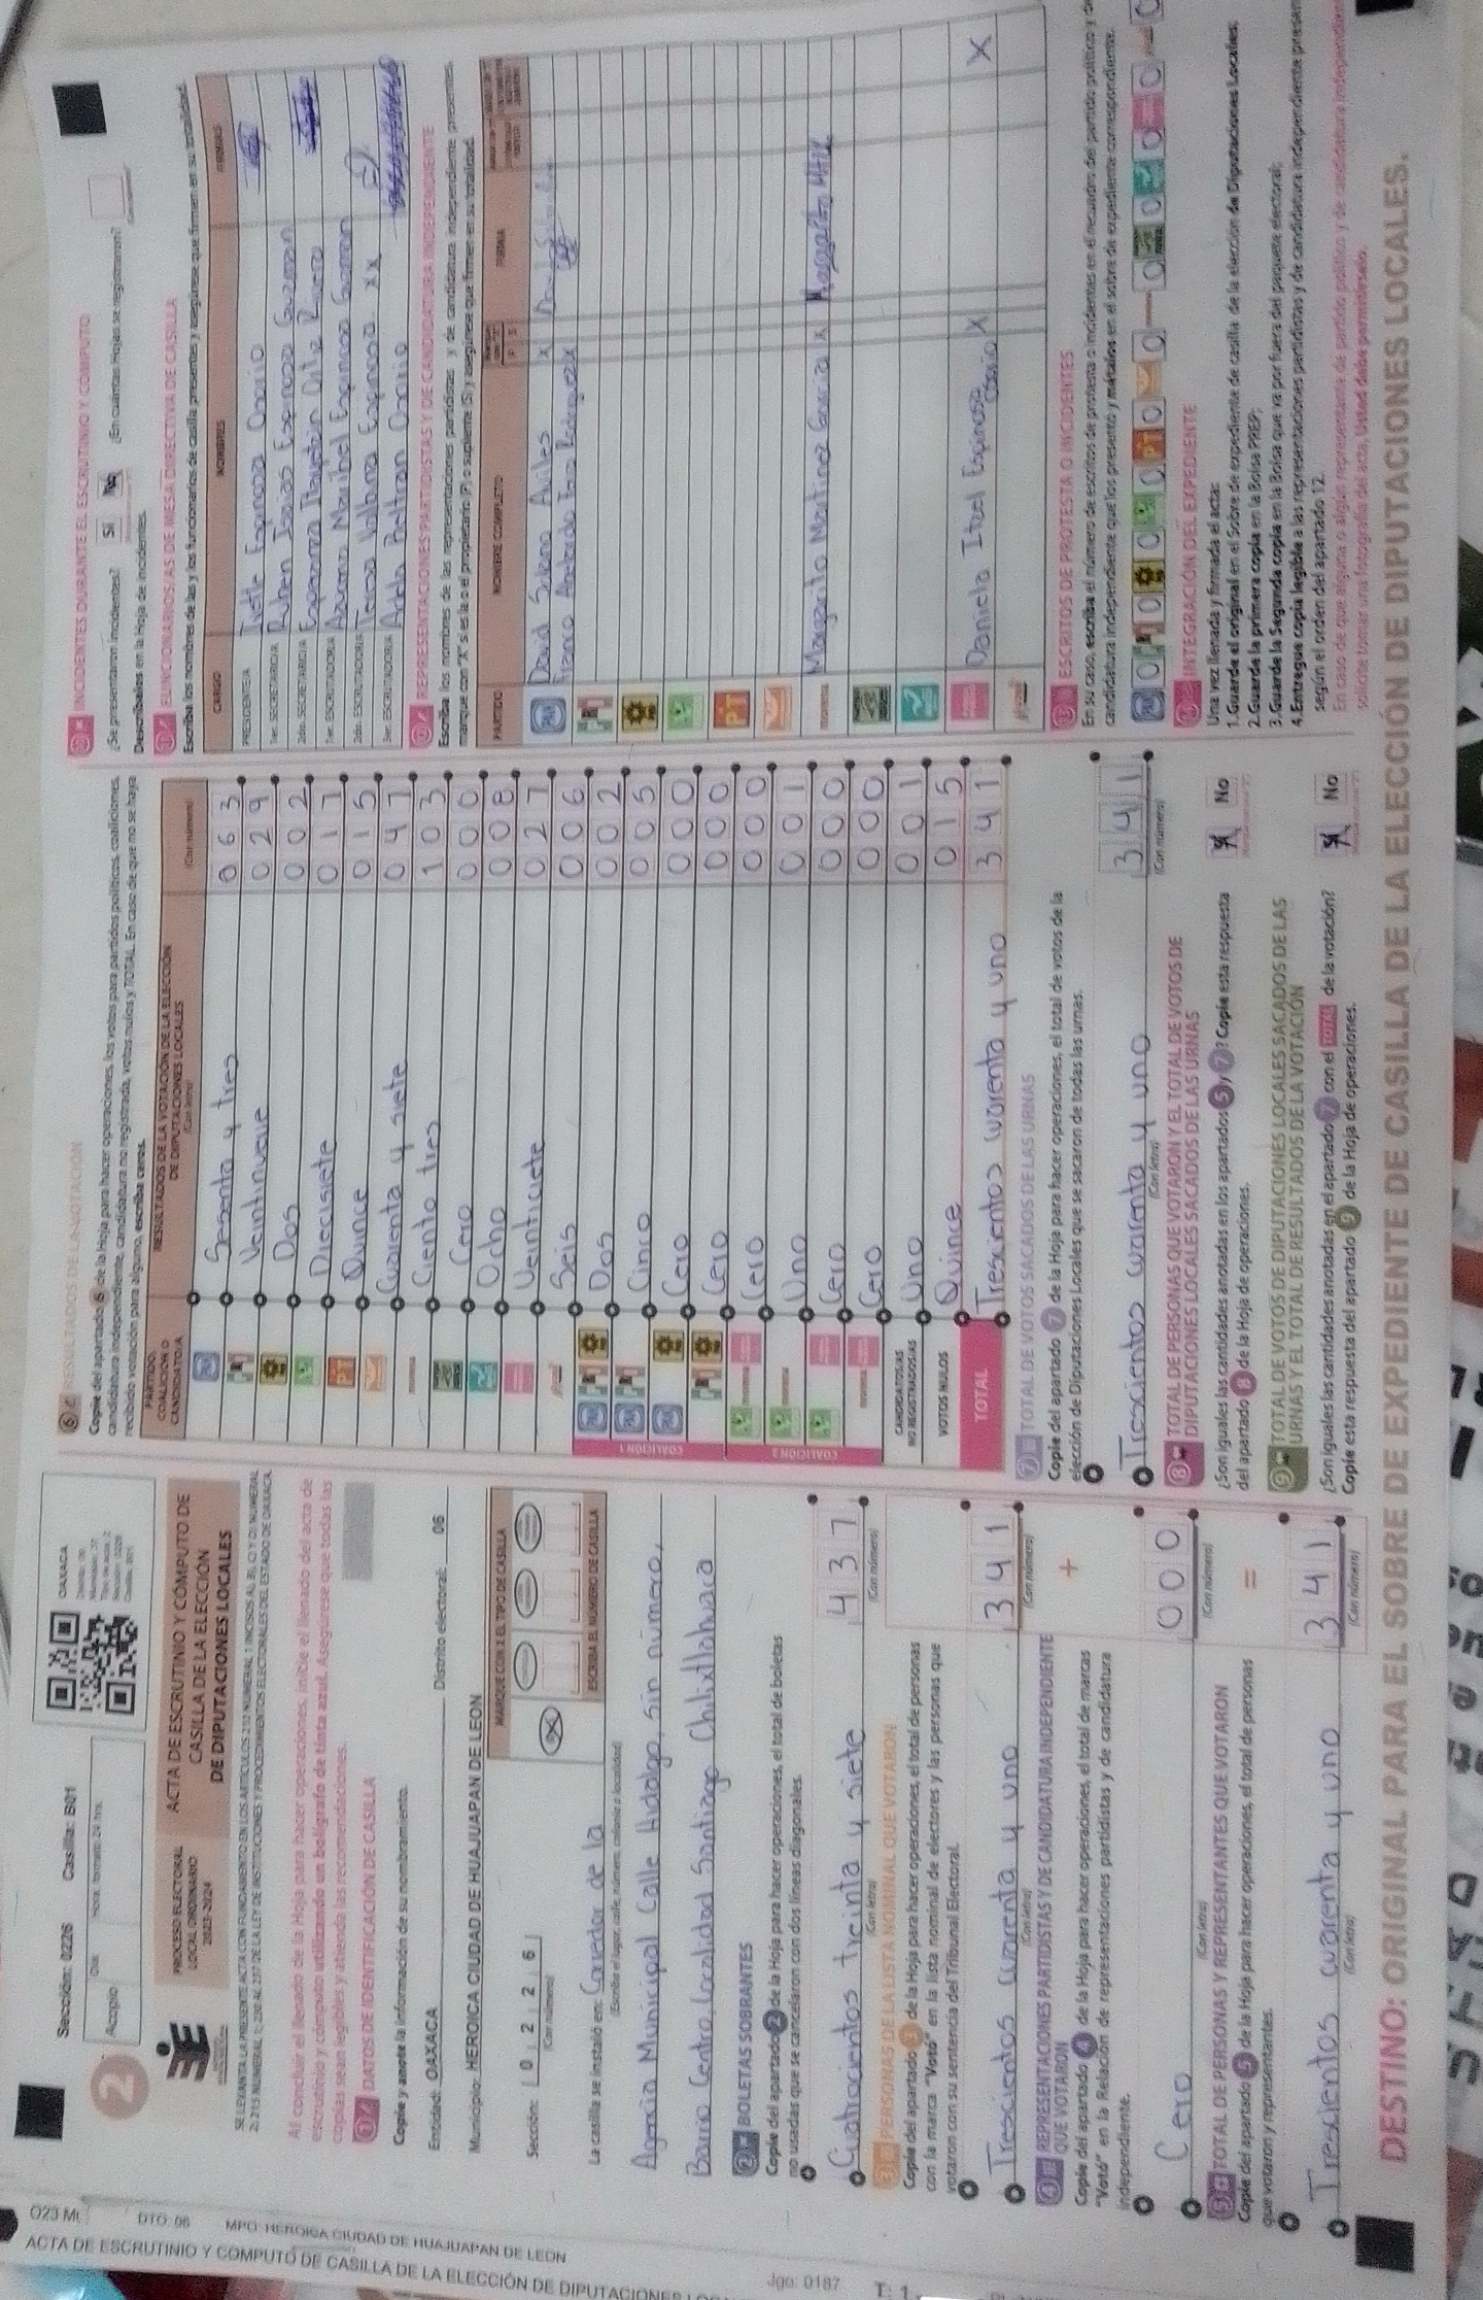 Sección: 0226 Casilla: B01
2
Acopio
Día
Hora, formato 24 hrs.
OAXACA
PROCESO ELECTORAL
LOCAL ORDINARIO
2023-2024
ACTA DE ESCRUTINIO Y CÓMPUTO DE
CASILLA DE LA ELECCIÓN
DE DIPUTACIONES LOCALES
Al concluir el llenado de la Hoja para hacer operaciones, inicie el llenado del acta de
escrutinio y cómputo utilizando un bolígrafo de tinta azul. Asegúrese que todas las
copias sean legibles y atienda las recomendaciones.
1 DATOS DE IDENTIFICACIÓN DE CASILLA
Copie y anote la información de su nombramiento.
Entidad: OAXACA Distrito electoral: 06
Municipio: HEROICA CIUDAD DE HUAJUAPAN DE LEON
Sección: 0 2 2 6
(Con número)
MARQUE CON X EL TIPO DE CASILLA
ESCRIBA EL NÚMERO DE CASILLA
La casilla se instaló en: Corredor de la
(Escriba el lugar, calle, número, colonia o localidad)
Agencia Municipal Calle Hidalgo, Sin número,
Barrio Centro, Localidad Santiago Chilixtlahuaca
2 BOLETAS SOBRANTES
Copie del apartado 2 de la Hoja para hacer operaciones, el total de boletas
no usadas que se cancelaron con dos líneas diagonales.
Cuatrocientos treinta y siete 4 3 7
(Con letra) (Con número)
3 PERSONAS DE LA LISTA NOMINAL QUE VOTARON
Copie del apartado 3 de la Hoja para hacer operaciones, el total de personas
con la marca "Votó" en la lista nominal de electores y las personas que
votaron con su sentencia del Tribunal Electoral.
Trescientos cuarenta y uno 3 4 1
(Con letra) (Con número)
4 REPRESENTACIONES PARTIDISTAS Y DE CANDIDATURA INDEPENDIENTE
QUE VOTARON
+
Copie del apartado 4 de la Hoja para hacer operaciones, el total de marcas
"Votó" en la Relación de representaciones partidistas y de candidatura
independiente.
Cero 0 0 0
(Con letra) (Con número)
5 TOTAL DE PERSONAS Y REPRESENTANTES QUE VOTARON
=
Copie del apartado 5 de la Hoja para hacer operaciones, el total de personas
que votaron y representantes.
Trescientos cuarenta y uno 3 4 1
(Con letra) (Con número)
6 RESULTADOS DE LA VOTACIÓN
Copie del apartado 6 de la Hoja para hacer operaciones, los votos para partidos políticos, coaliciones,
candidatura independiente, candidatura no registrada, votos nulos y TOTAL. En caso de que no se haya
recibido votación para alguno, escriba ceros.
PARTIDO, COALICIÓN O CANDIDATO/A
RESULTADOS DE LA VOTACIÓN DE LA ELECCIÓN
DE DIPUTACIONES LOCALES
(Con letra) (Con número)
PAN Sesenta y tres 0 6 3
PRI Veintinueve 0 2 9
PRD Dos 0 0 2
Diecisiete 0 1 7
PT Quince 0 1 5
Cuarenta y siete 0 4 7
morena Ciento tres 1 0 3
Cero 0 0 0
Ocho 0 0 8
Veintisiete 0 2 7
COALICIÓN 1
Seis 0 0 6
Dos 0 0 2
Cinco 0 0 5
Cero 0 0 0
Cero 0 0 0
COALICIÓN 2
Cero 0 0 0
Uno 0 0 1
Cero 0 0 0
Cero 0 0 0
CANDIDATOS/AS
NO REGISTRADOS/AS Uno 0 0 1
VOTOS NULOS Quince 0 1 5
TOTAL Trescientos cuarenta y uno 3 4 1
7 TOTAL DE VOTOS SACADOS DE LAS URNAS
Copie del apartado 7 de la Hoja para hacer operaciones, el total de votos de la
elección de Diputaciones Locales que se sacaron de todas las urnas.
Trescientos cuarenta y uno 3 4 1
(Con letra) (Con número)
8 TOTAL DE PERSONAS QUE VOTARON Y EL TOTAL DE VOTOS DE
DIPUTACIONES LOCALES SACADOS DE LAS URNAS
¿Son iguales las cantidades anotadas en los apartados 5 y 7? Copie esta respuesta
del apartado 8 de la Hoja de operaciones.
Sí No
9 TOTAL DE VOTOS DE DIPUTACIONES LOCALES SACADOS DE LAS
URNAS Y EL TOTAL DE RESULTADOS DE LA VOTACIÓN
¿Son iguales las cantidades anotadas en el apartado 7 con el TOTAL de la votación?
Copie esta respuesta del apartado 9 de la Hoja de operaciones.
Sí No
INCIDENTES DURANTE EL ESCRUTINIO Y CÓMPUTO
¿Se presentaron incidentes? Sí No ¿En cuántas Hojas se registraron?
Descríbalos en la Hoja de incidentes.
FUNCIONARIOS/AS DE MESA DIRECTIVA DE CASILLA
Escriba los nombres de las y los funcionarios de casilla presentes y asegúrese que firmen en su totalidad.
CARGO NOMBRES FIRMAS
PRESIDENTE/A Ivette Espinoza Osorio
1er. SECRETARIO/A Ruben Jonias Espinoza Guzman
2do. SECRETARIO/A Esperanza
1er. ESCRUTADOR/A Azucena Maribel Espinosa Guzman
2do. ESCRUTADOR/A Teresa Espinoza
3er. ESCRUTADOR/A Adela Beltran Osorio
REPRESENTACIONES PARTIDISTAS Y DE CANDIDATURA INDEPENDIENTE
Escriba los nombres de las representaciones partidistas y de candidatura independiente presentes,
marque con "X" si es la o el propietario (P) o suplente (S) y asegúrese que firmen en su totalidad.
PARTIDO NOMBRE COMPLETO FIRMA
PAN David Aviles X
PRI Franco Rodriguez X
PRD
PT
morena Margarito Martinez Garcia X
Daniela Itzel Espinoza Osorio X X
ESCRITOS DE PROTESTA O INCIDENTES
En su caso, escriba el número de escritos de protesta o incidentes en el recuadro del partido político y de
candidatura independiente que los presentó y métalos en el sobre de expediente correspondiente.
INTEGRACIÓN DEL EXPEDIENTE
Una vez llenada y firmada el acta:
1. Guarde el original en el Sobre de expediente de casilla de la elección de Diputaciones Locales;
2. Guarde la primera copia en la Bolsa PREP;
3. Guarde la Segunda copia en la Bolsa que va por fuera del paquete electoral;
4. Entregue copia legible a las representaciones partidistas y de candidatura independiente presen
según el orden del apartado 12.
En caso de que alguna o algún representante de partido político y de candidatura independien
solicite tomar una fotografía del acta, Usted debe permitírselo.
DESTINO: ORIGINAL PARA EL SOBRE DE EXPEDIENTE DE CASILLA DE LA ELECCIÓN DE DIPUTACIONES LOCALES.
DTO: 06
MPO: HEROICA CIUDAD DE HUAJUAPAN DE LEON
ACTA DE ESCRUTINIO Y COMPUTO DE CASILLA DE LA ELECCIÓN DE DIPUTACIONES
Jgo: 0187
T: 1